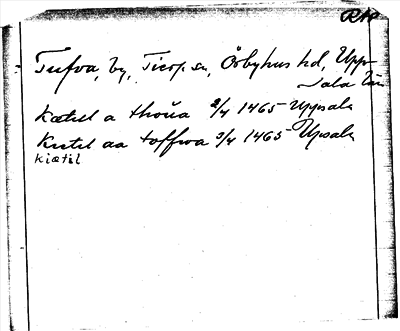 RA
Tufva, by, Tierp sn, Örbyhus hd, Upp-
sala län
Kætil a thoua 2/4 1465 Uppsala
Ketil aa toffwa 3/4 1465 Upsala
kiætil